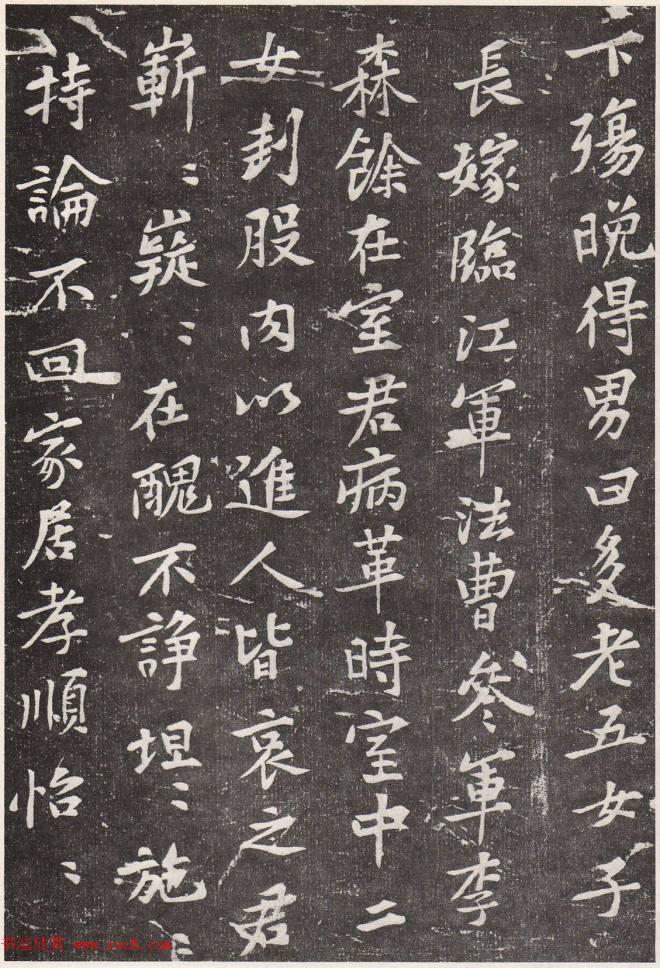 下殤晩得男曰多老五女子
長嫁臨江軍法曹參軍李
森餘在室君病革時室中二
女刲股肉以進人皆哀之君
嶄〻嶷〻在醜不諍坦〻施〻
持論不回家居孝順怡〻
书法欣赏 www.yac8.com